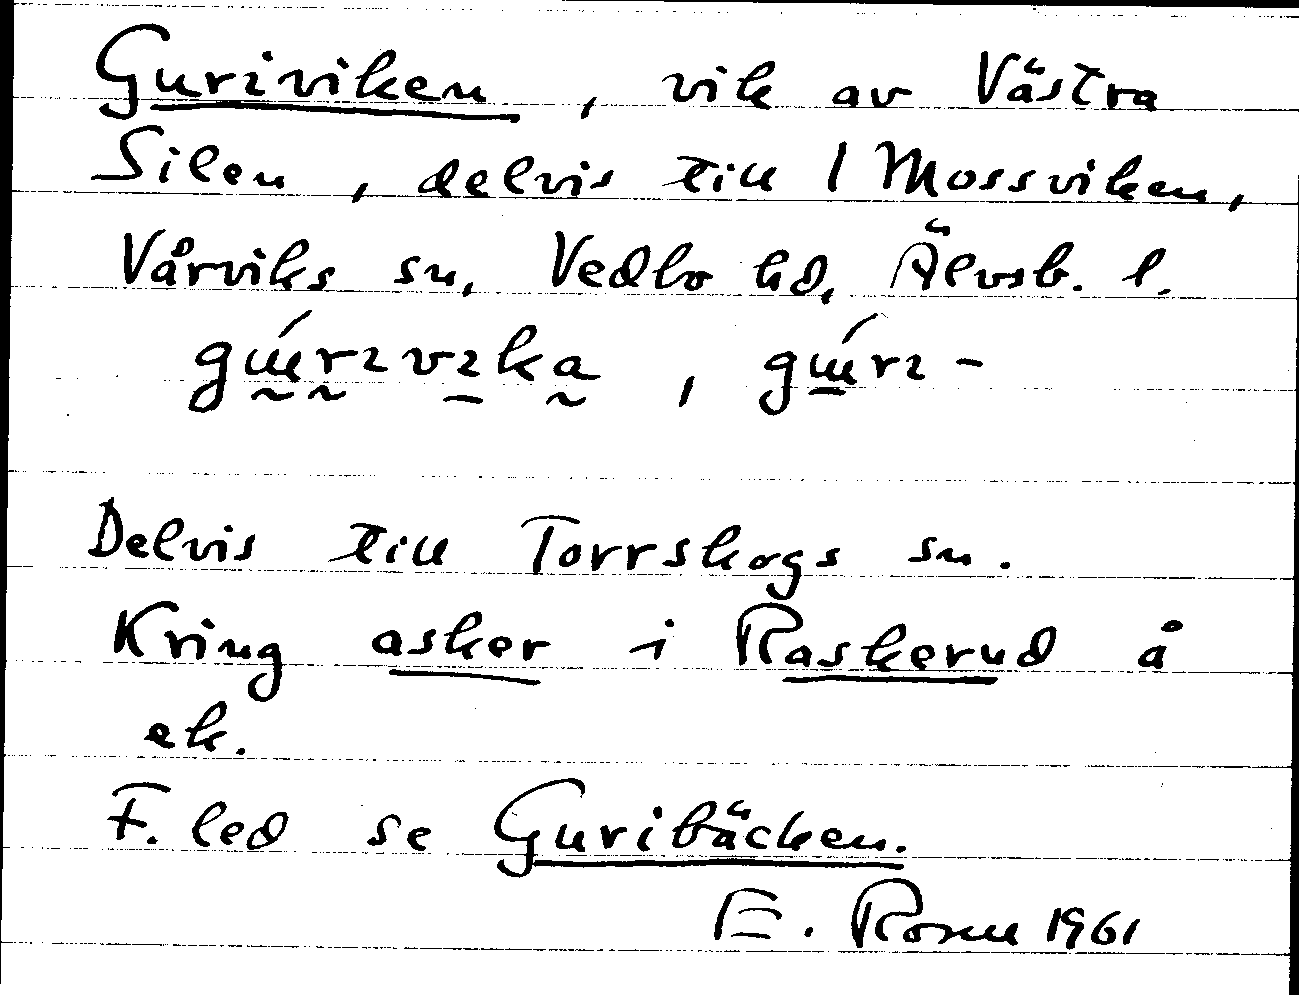 Guriviken, vik av Västra
Silen, delvis till 1 Mossviken,
Vårviks sn, Vedbo hd, Älvsb. l.
Delvis till Torrskogs sn.
Kring asker i Raskerud å
ek.
F. led se Guribäcken.
E. 1961